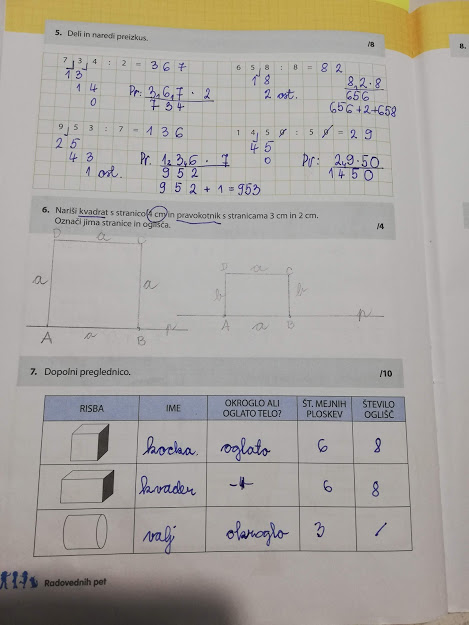 5. Deli in naredi preizkus.
/8
8.
7 3 4 : 2 = 3 6 7
1 3
1 4
0
Pr: 3 6 7 · 2
7 3 4
6 5 8 : 8 = 8 2
1 8
2 ost.
8 2 · 8
656
656+2=658
9 5 3 : 7 = 1 3 6
2 5
4 3
1 ost.
Pr. 1 3 6 · 7
9 5 2
9 5 2 + 1 = 953
1 4 5 0 : 5 0 = 2 9
4 5
0
Pr: 2 9 · 50
1 4 5 0
6. Nariši kvadrat s stranico 4 cm in pravokotnik s stranicama 3 cm in 2 cm.
Označi jima stranice in oglišča.
/4
D a C
a a
A a B p
D a C
b b
A a B p
7. Dopolni preglednico.
/10
RISBA IME OKROGLO ALI OGLATO TELO? ŠT. MEJNIH PLOSKEV ŠTEVILO OGLIŠČ
kocka. oglato 6 8
kvader -"- 6 8
valj okroglo 3 /
Radovednih pet